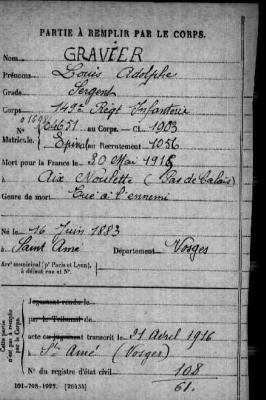 PARTIE À REMPLIR PAR LE CORPS.
Nom GRAVIER
Prénoms Louis Adolphe
Grade Sergent
Corps 149e Régt Infanterie
Matricule. au Corps. — Cl. 1903
Epinal au Recrutement 1056
Mort pour la France le 20 Mai 1915
à Aix Noulette (Pas de Calais)
Genre de mort Tué à l'ennemi
Né le 16 Juin 1883
à Saint Amé Département Vosges
Arrt municipal (pr Paris et Lyon), à défaut rue et No.
Cette partie n'est pas à remplir par le Corps.
Jugement rendu le
par le Tribunal de
acte ou jugement transcrit le 21 Avril 1916
à St Amé (Vosges)
No du registre d'état civil 108
61.
101-708-1922. [26435]